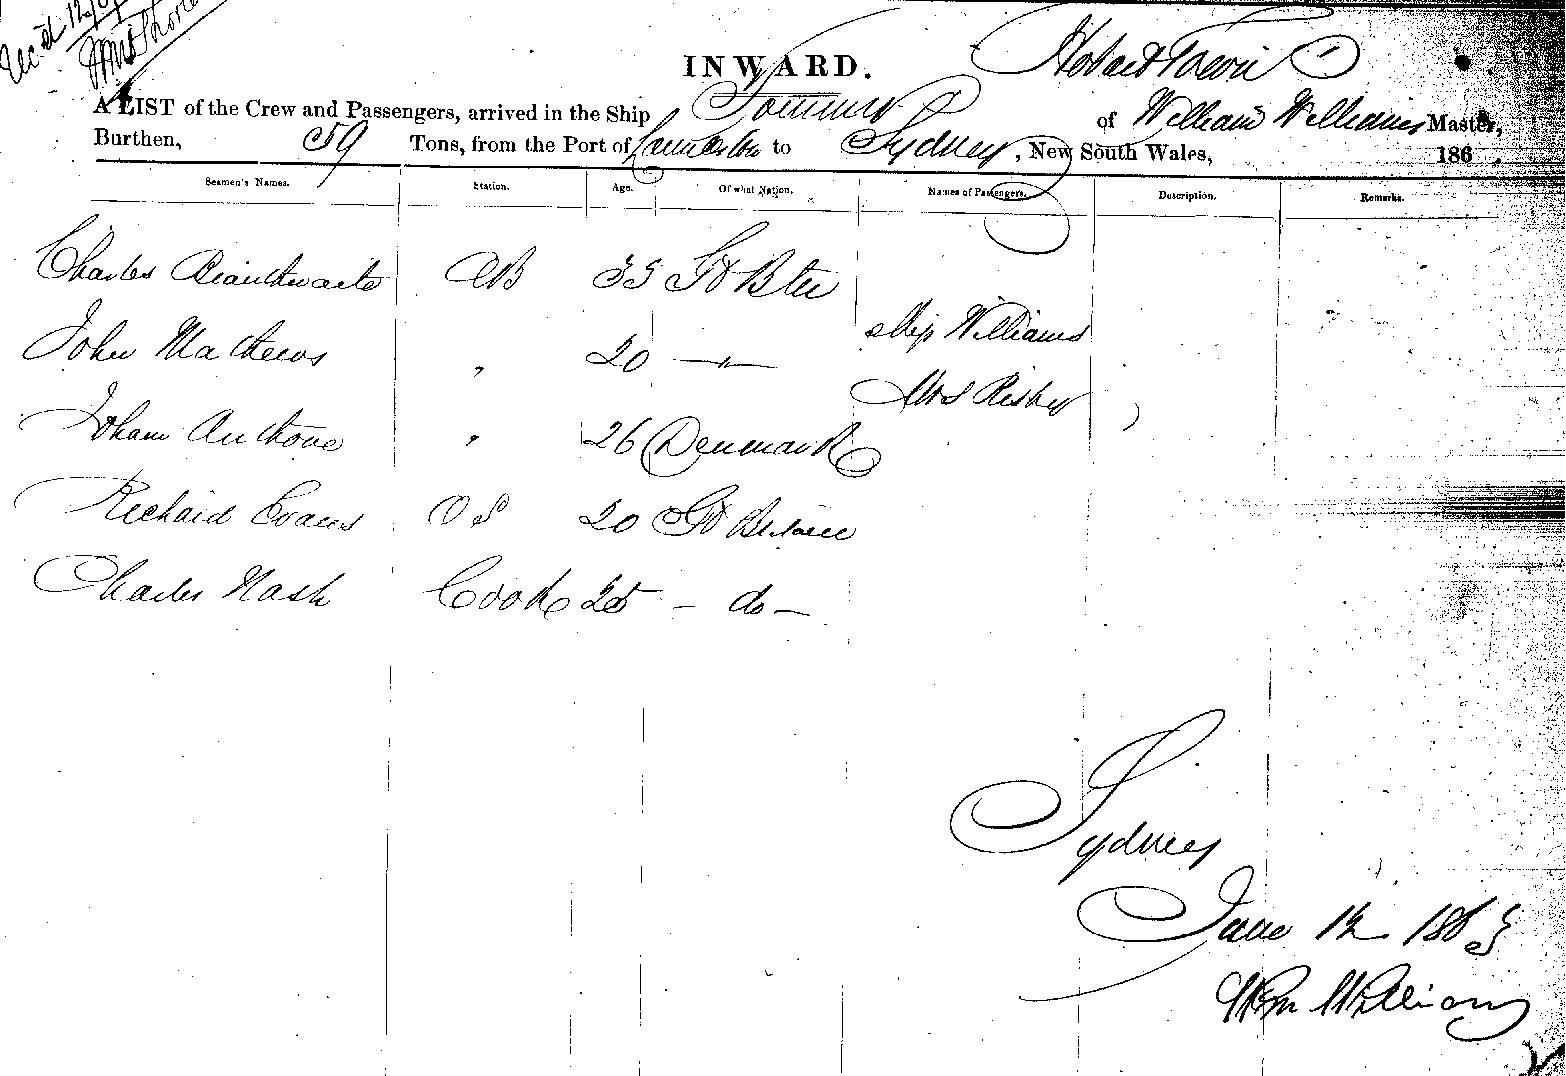 Rec'd 12/6/
INWARD.
Hobart Town
A LIST of the Crew and Passengers, arrived in the Ship of William Williams Master,
Burthen, 59 Tons, from the Port of Launceston to Sydney, New South Wales, 186 .
Seamen's Names. Station. Age. Of what Nation. Names of Passengers. Description. Remarks.
Charles Brauthwaite AB 35 Gt
John Mathews " 20 — " — Williams
Mrs
Johann Anthone " 26 Denmark
Richard Evans OS 20 Gt Britain
Charles Nash Cook 25 - do -
Sydney
June 12 1863
Wm Williams